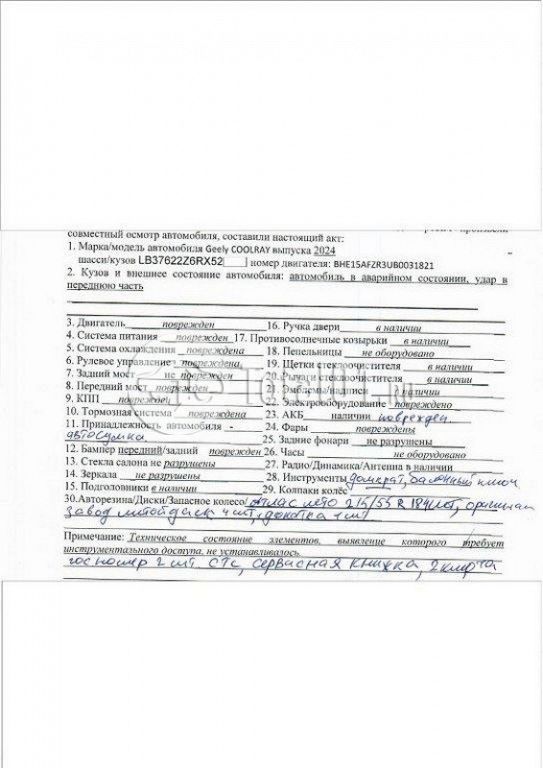 совместный осмотр автомобиля, составили настоящий акт:
1. Марка/модель автомобиля Geely COOLRAY выпуска 2024
шасси/кузов LB37622Z6RX52 номер двигателя: BHE15AFZR3UB0031821
2. Кузов и внешнее состояние автомобиля: автомобиль в аварийном состоянии, удар в
переднюю часть
3. Двигатель поврежден 16. Ручка двери в наличии
4. Система питания поврежден 17. Противосолнечные козырьки в наличии
5. Система охлаждения повреждена 18. Пепельницы не оборудовано
6. Рулевое управление повреждена 19. Щетки стеклоочистителя в наличии
7. Задний мост не поврежден 20. Рычаги стеклоочистителя в наличии
8. Передний мост поврежден 21. Эмблемы/надписи в наличии
9. КПП поврежден 22. Электрооборудование повреждено
10. Тормозная система повреждена 23. АКБ наличии поврежден.
11. Принадлежность автомобиля - 24. Фары повреждены
автосумка 25. Задние фонари не разрушены
12. Бампер передний/задний поврежден 26. Часы не оборудовано
13. Стекла салона не разрушены 27. Радио/Динамика/Антенна в наличии
14. Зеркала не разрушены 28. Инструменты домкрат, балонный ключ
15. Подголовники в наличии 29. Колпаки колёс
30. Авторезина/Диски/Запасное колесо/ Атлас лето 215/55 R 18 4шт,
завод литой диск 4 шт, докатка 1 шт
Примечание: Техническое состояние элементов, выявление которого требует
инструментального доступа, не устанавливалось.
гос номер 2 шт. СТС, сервисная книжка, 2 ключа